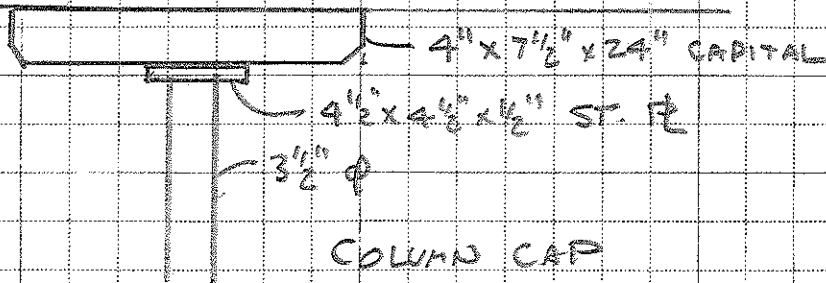 4" x 7½" x 24" CAPITAL
4½" x 4½" x ½" ST. PL
3½" φ
COLUMN CAP